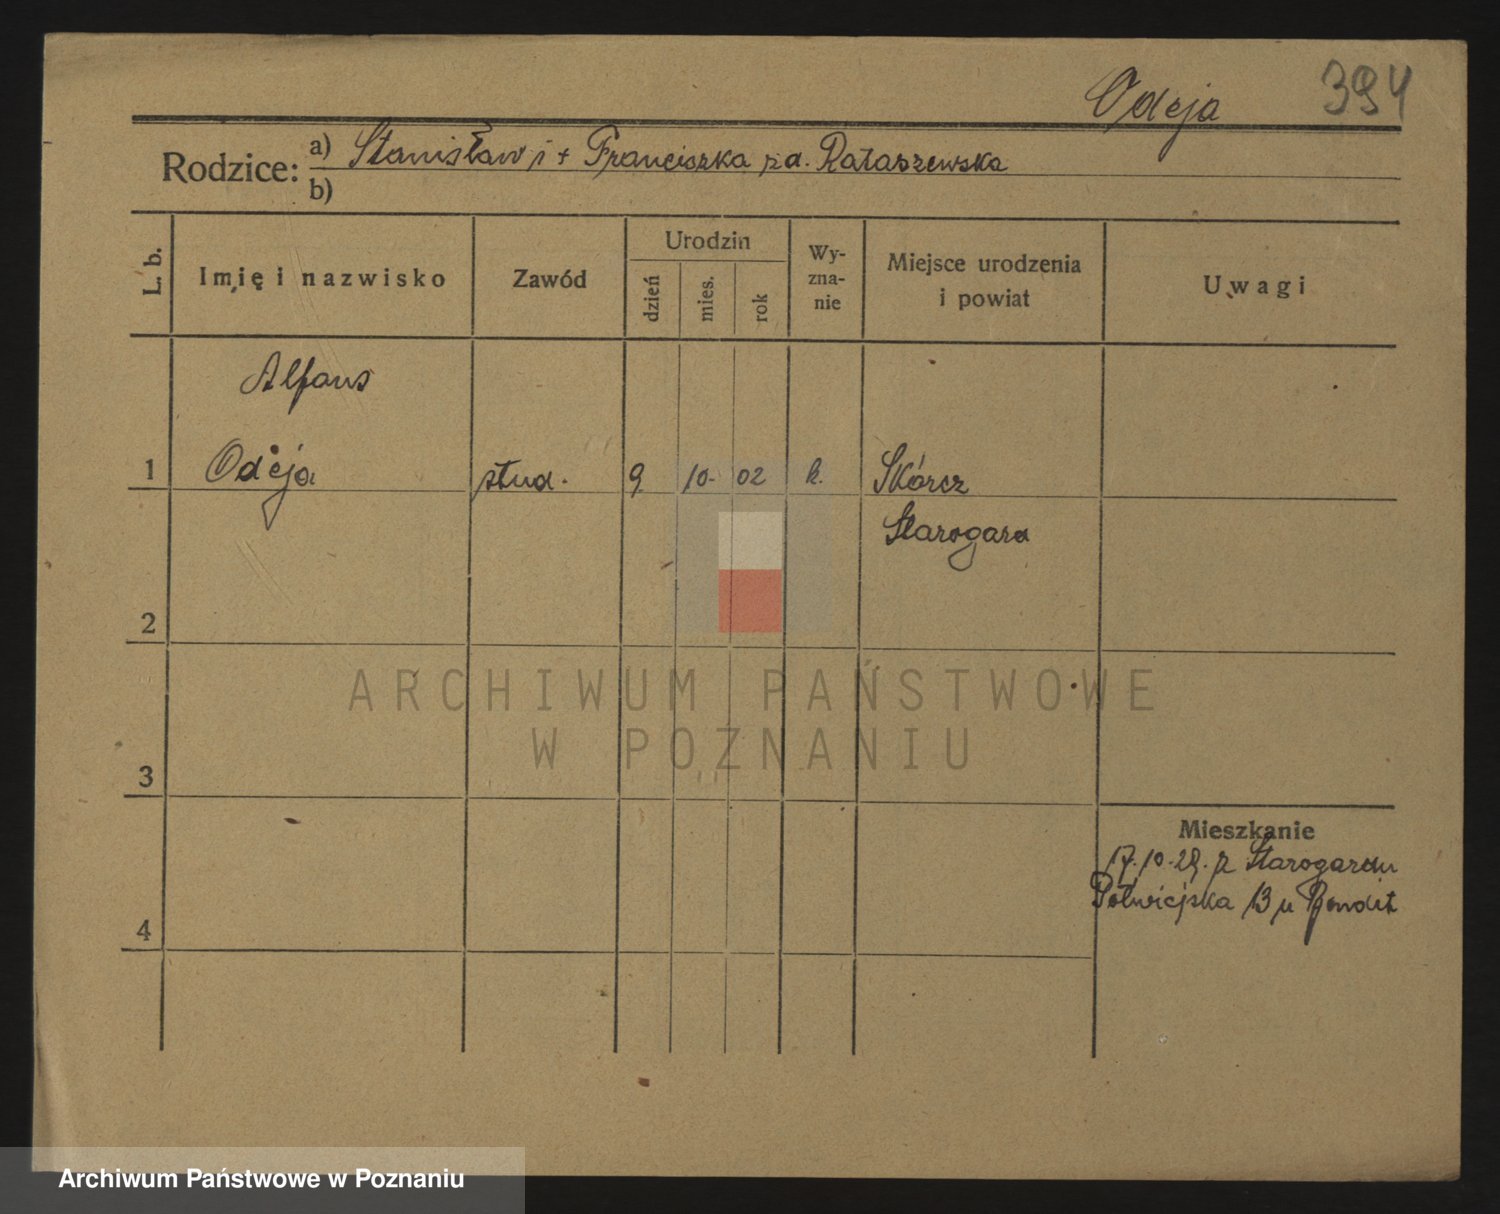 Odeja 394
Rodzice: a) Stanisław i + Franciszka zd. Rataszewska
b)
L. b. Imię i nazwisko Zawód Urodzin dzień mies. rok Wyznanie Miejsce urodzenia i powiat Uwagi
Alfons
1 Odeja stud. 9. 10. 02 k. Skórcz
Starogard
2
ARCHIWUM PAŃSTWOWE
W POZNANIU
3
Mieszkanie
17.10.29. z Starogardu
Półwiejska 13 u
4
Archiwum Państwowe w Poznaniu